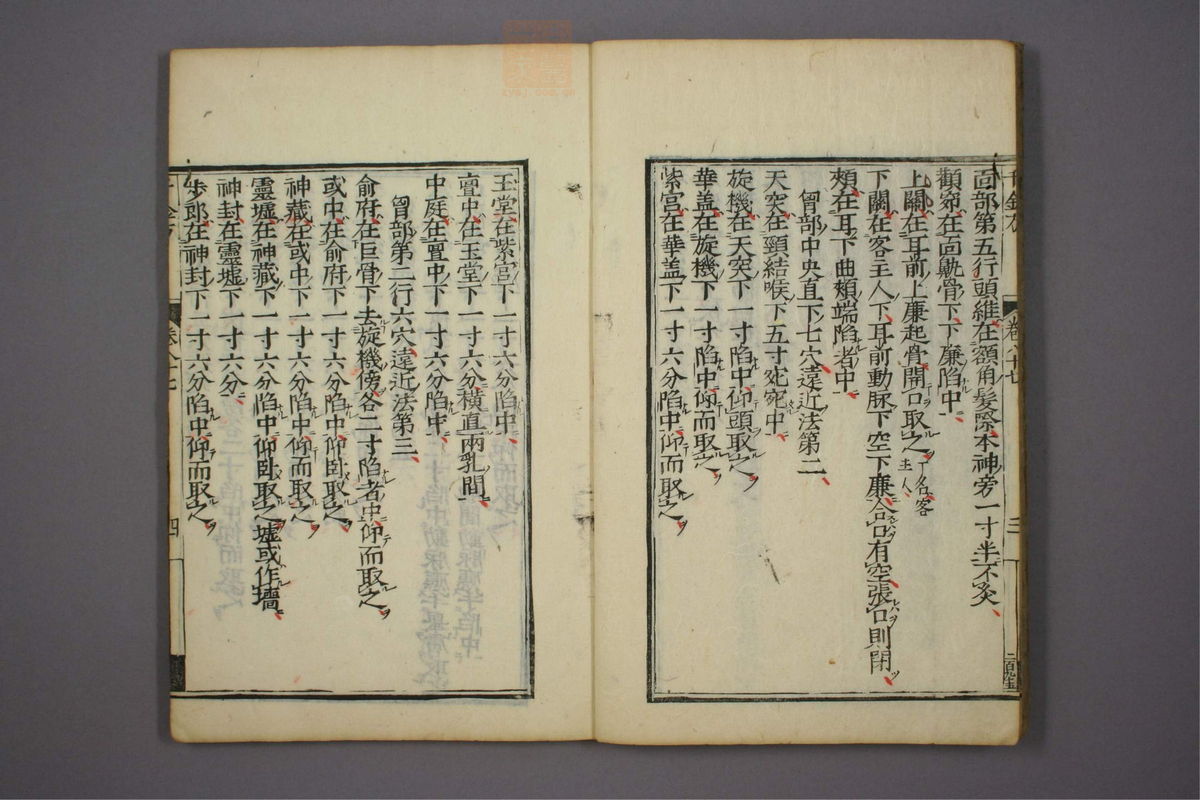 面部第五行頭維在額角髮際本神旁一寸半不灸
顴窌在面鼽骨下下廉陷中
上關在耳前上廉起骨開口取之一名客主人
下關在客主人下耳前動脉下空下廉合口有空張口則閉
頰在耳下曲頰端陷者中
胷部中央直下七穴遠近法第二
天突在頸結喉下五寸宛宛中
旋機在天突下一寸陷中仰頭取之
華盖在旋機下一寸陷中仰而取之
紫宫在華盖下一寸六分陷中仰而取之
卷八十七
三
玉堂在紫宫下一寸六分陷中
亶中在玉堂下一寸六分橫直兩乳間
中庭在亶中下一寸六分陷中
胷部第二行六穴遠近法第三
俞府在巨骨下去旋機傍各二寸陷者中仰而取之
或中在俞府下一寸六分陷中仰卧取之
神藏在或中下一寸六分陷中仰而取之
靈墟在神藏下一寸六分陷中仰卧取之墟或作墻
神封在靈墟下一寸六分
步郎在神封下一寸六分陷中仰而取之
千金方
卷八十七
四